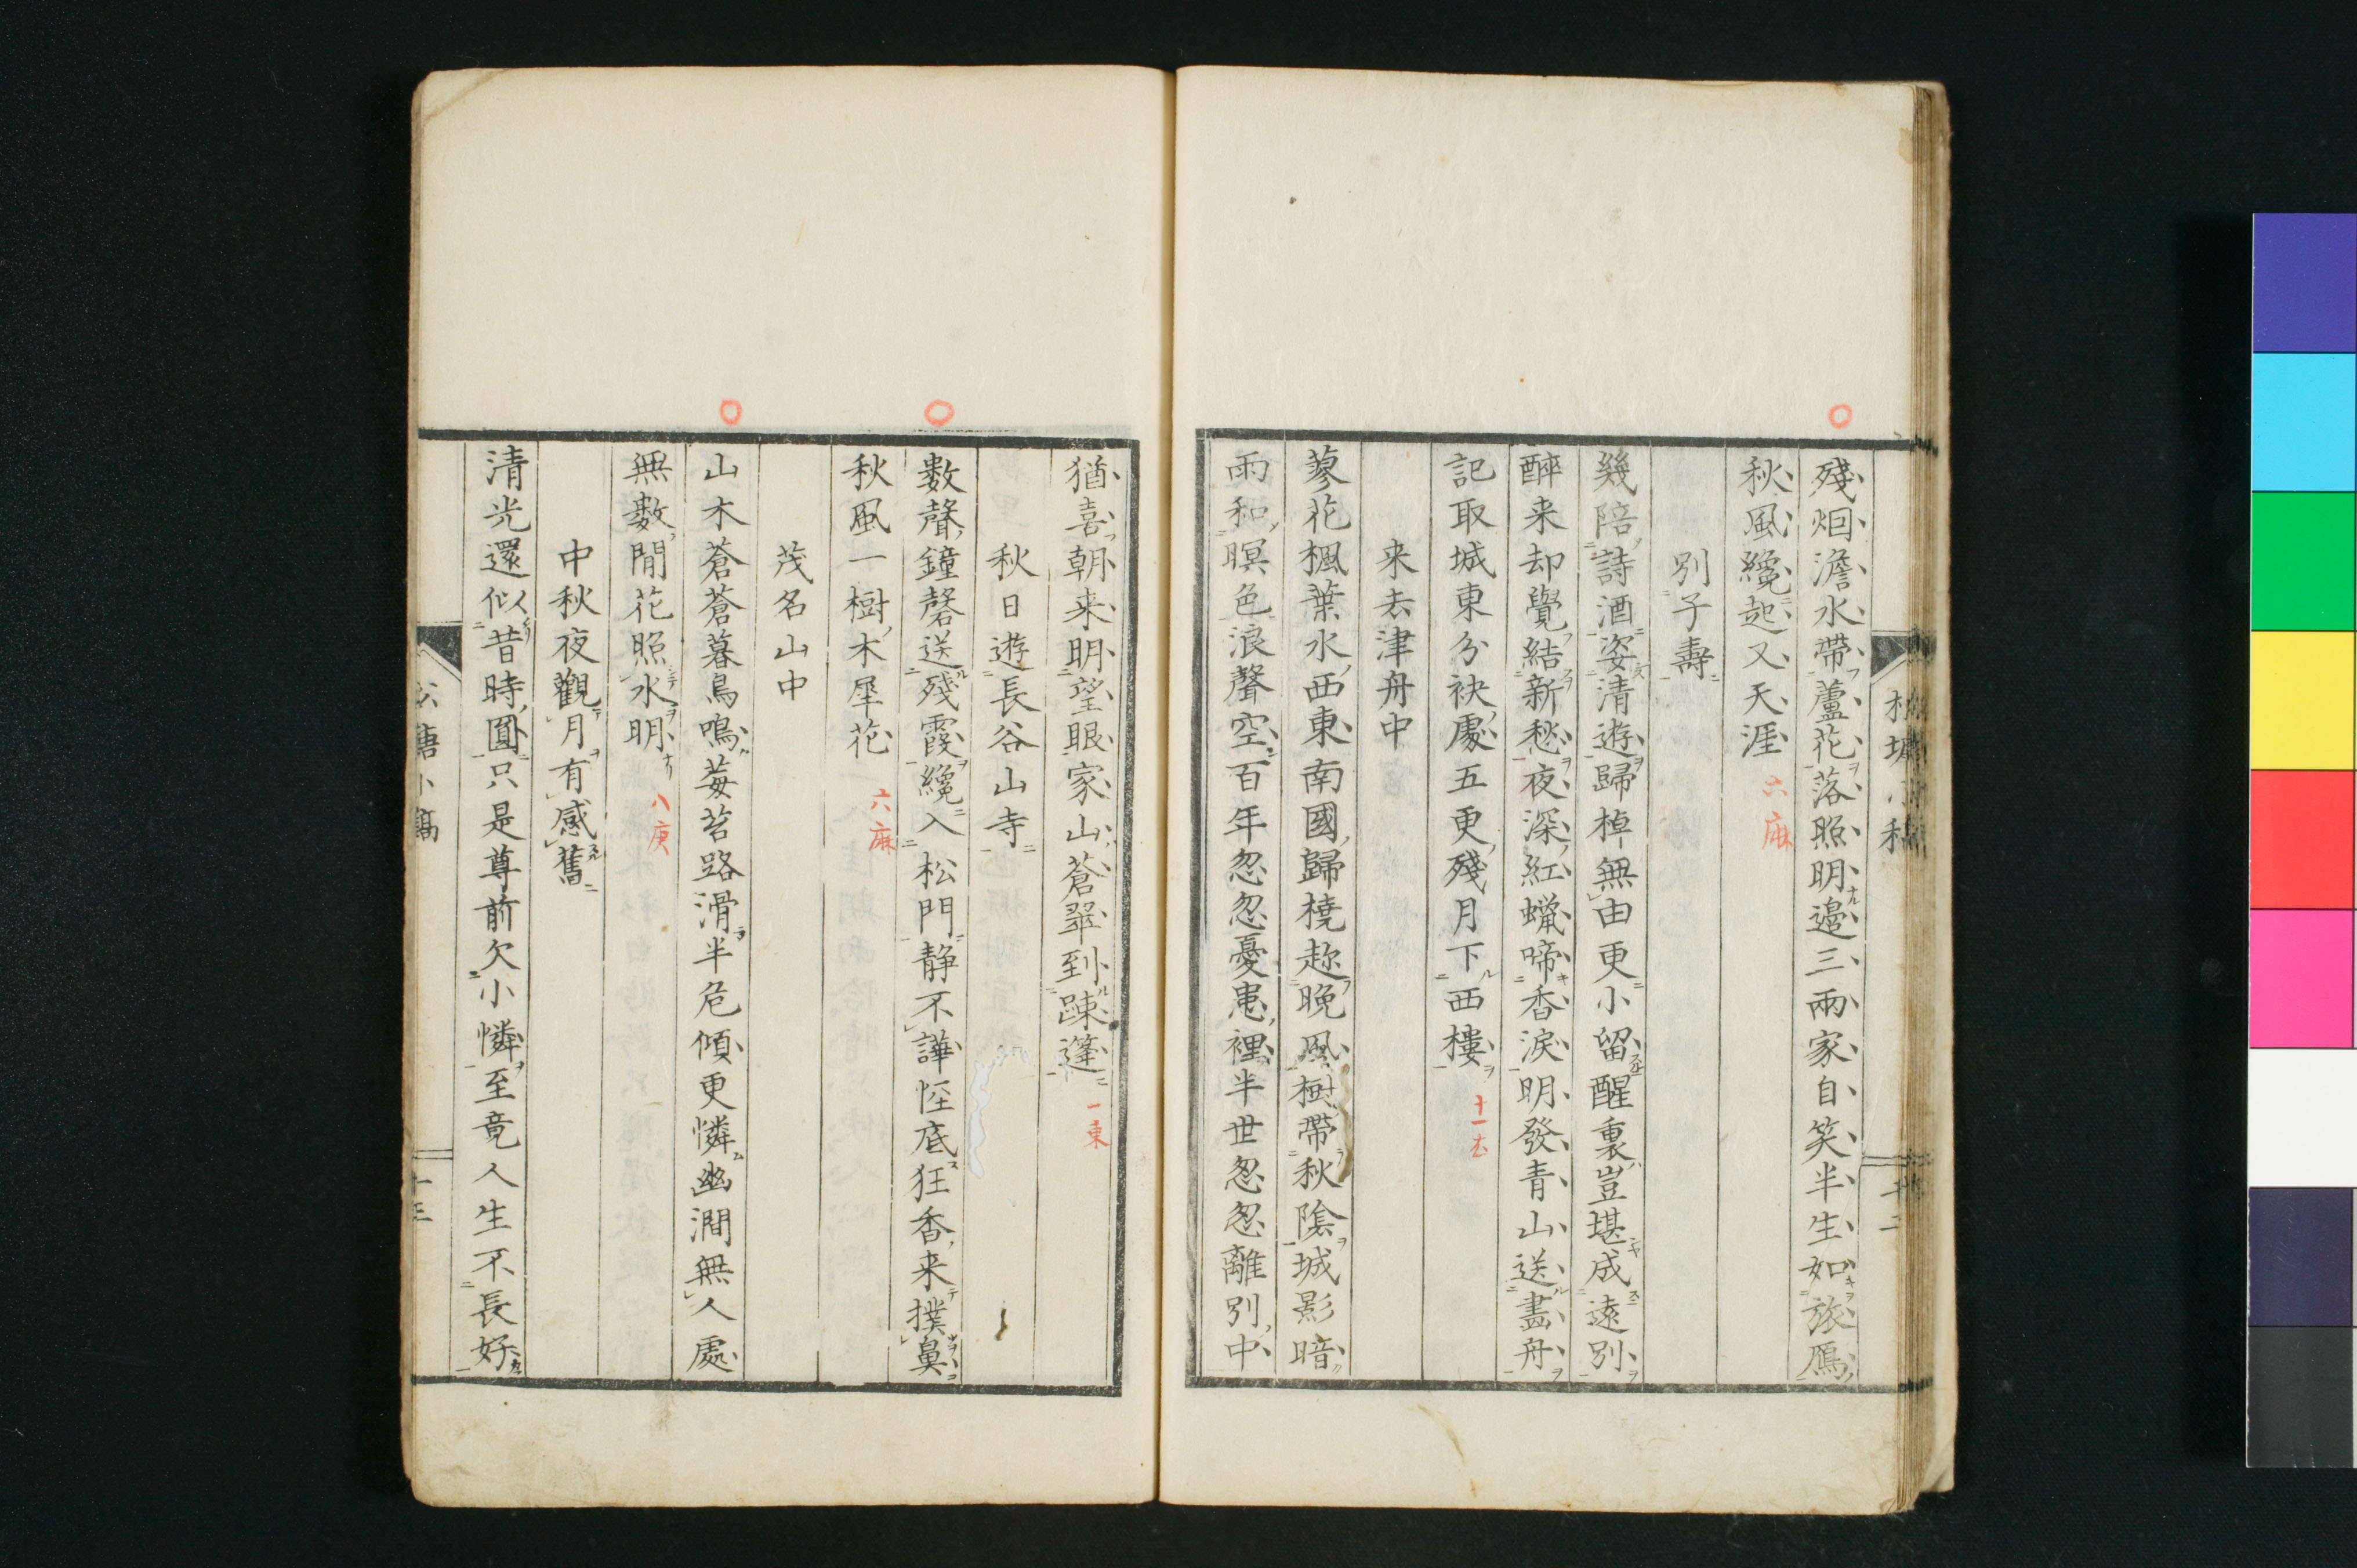 殘烟澹水帶蘆花落照明邊三兩家自笑半生如旅鴈
秋風纔起又天涯
六麻
別子壽
幾陪詩酒姿清遊歸棹無由更小留醒裏豈堪成遠別
醉来却覺結新愁夜深紅蠟啼香淚明發青山送畫舟
記取城東分袂處五更殘月下西樓
十一尤
来去津舟中
蓼花楓葉水西東南國歸橈趂晩風樹帶秋陰城影暗
雨和暝色浪聲空百年忽忽憂患裡半世怱怱離別中
猶喜朝来明望眼家山蒼翠到疎篷
一東
秋日遊長谷山寺
数聲鐘磬送殘霞纔入松門静不譁怪底狂香来撲鼻
秋風一樹木犀花
六麻
茂名山中
山木蒼蒼暮鳥鳴莓苔路滑半危傾更憐幽澗無人處
無數閒花照水明
八庚
中秋夜觀月有感舊
清光還似昔時圓只是尊前欠小憐至竟人生不長好
塘小稿
十三